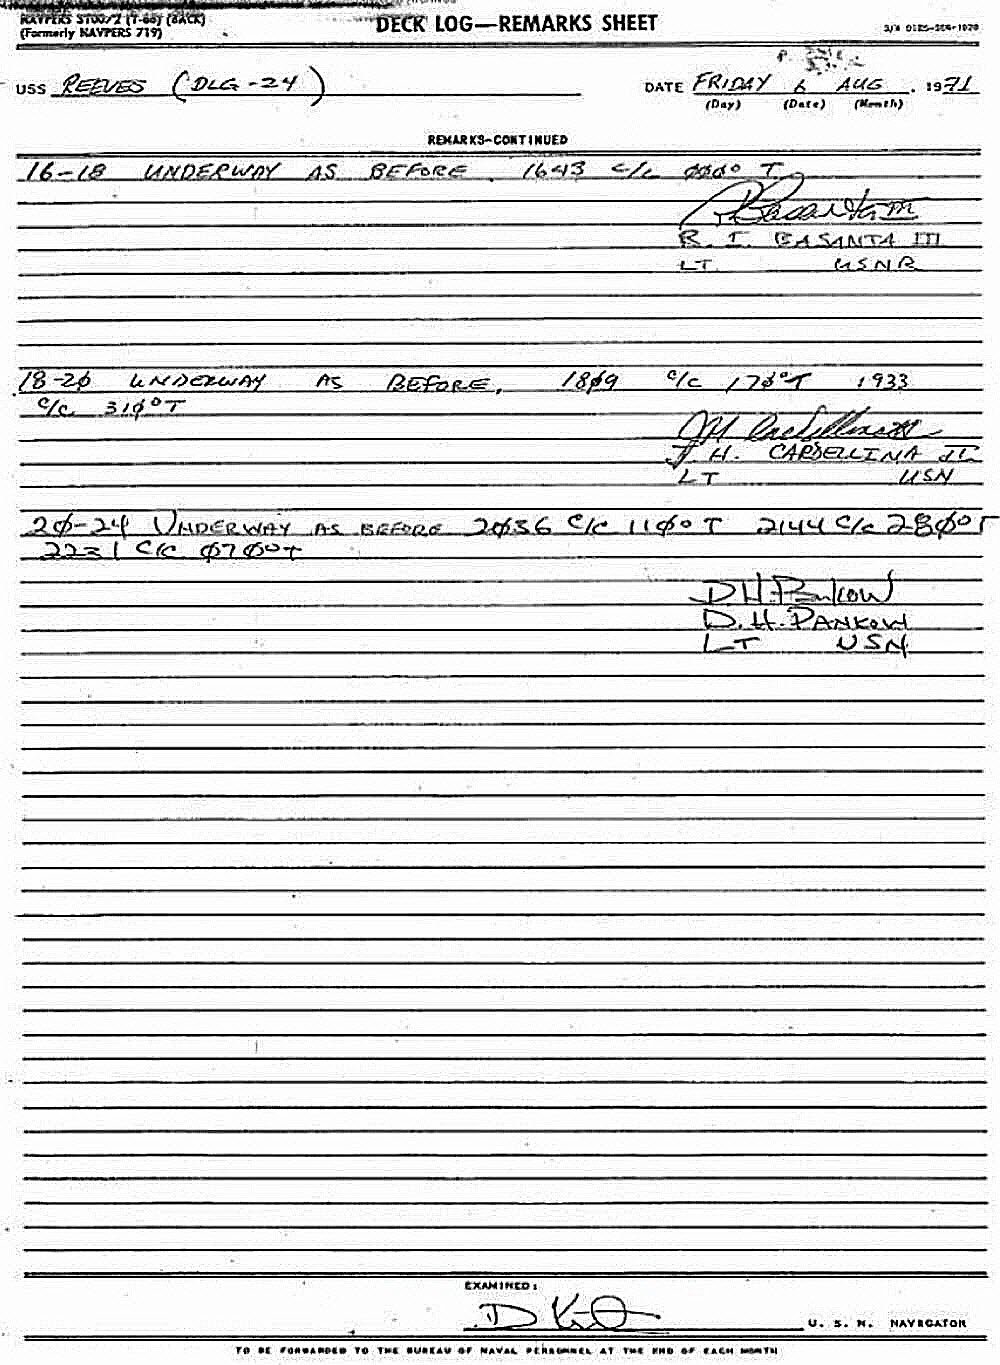 NAVPERS 3100/2 (7-66) (BACK)
(Formerly NAVPERS 719)
DECK LOG—REMARKS SHEET
USS REEVES (DLG-24)
DATE FRIDAY 6 AUG, 1971
(Day) (Date) (Month)
REMARKS-CONTINUED
16-18 UNDERWAY AS BEFORE. 1643 C/C ØØØ° T.
R. I. BASANTA III
LT. USNR
18-2Ø UNDERWAY AS BEFORE, 18Ø9 C/C 17Ø°T 1933
C/C 31Ø°T
J. H. CARDELLINA JR.
LT USN
2Ø-24 UNDERWAY AS BEFORE 2Ø36 C/C 11Ø°T 2144 C/C 28Ø°T
2231 C/C Ø7Ø°T
D.H. Pankow
D. H. PANKOW
LT USN
EXAMINED:
U. S. N. NAVIGATOR
TO BE FORWARDED TO THE BUREAU OF NAVAL PERSONNEL AT THE END OF EACH MONTH